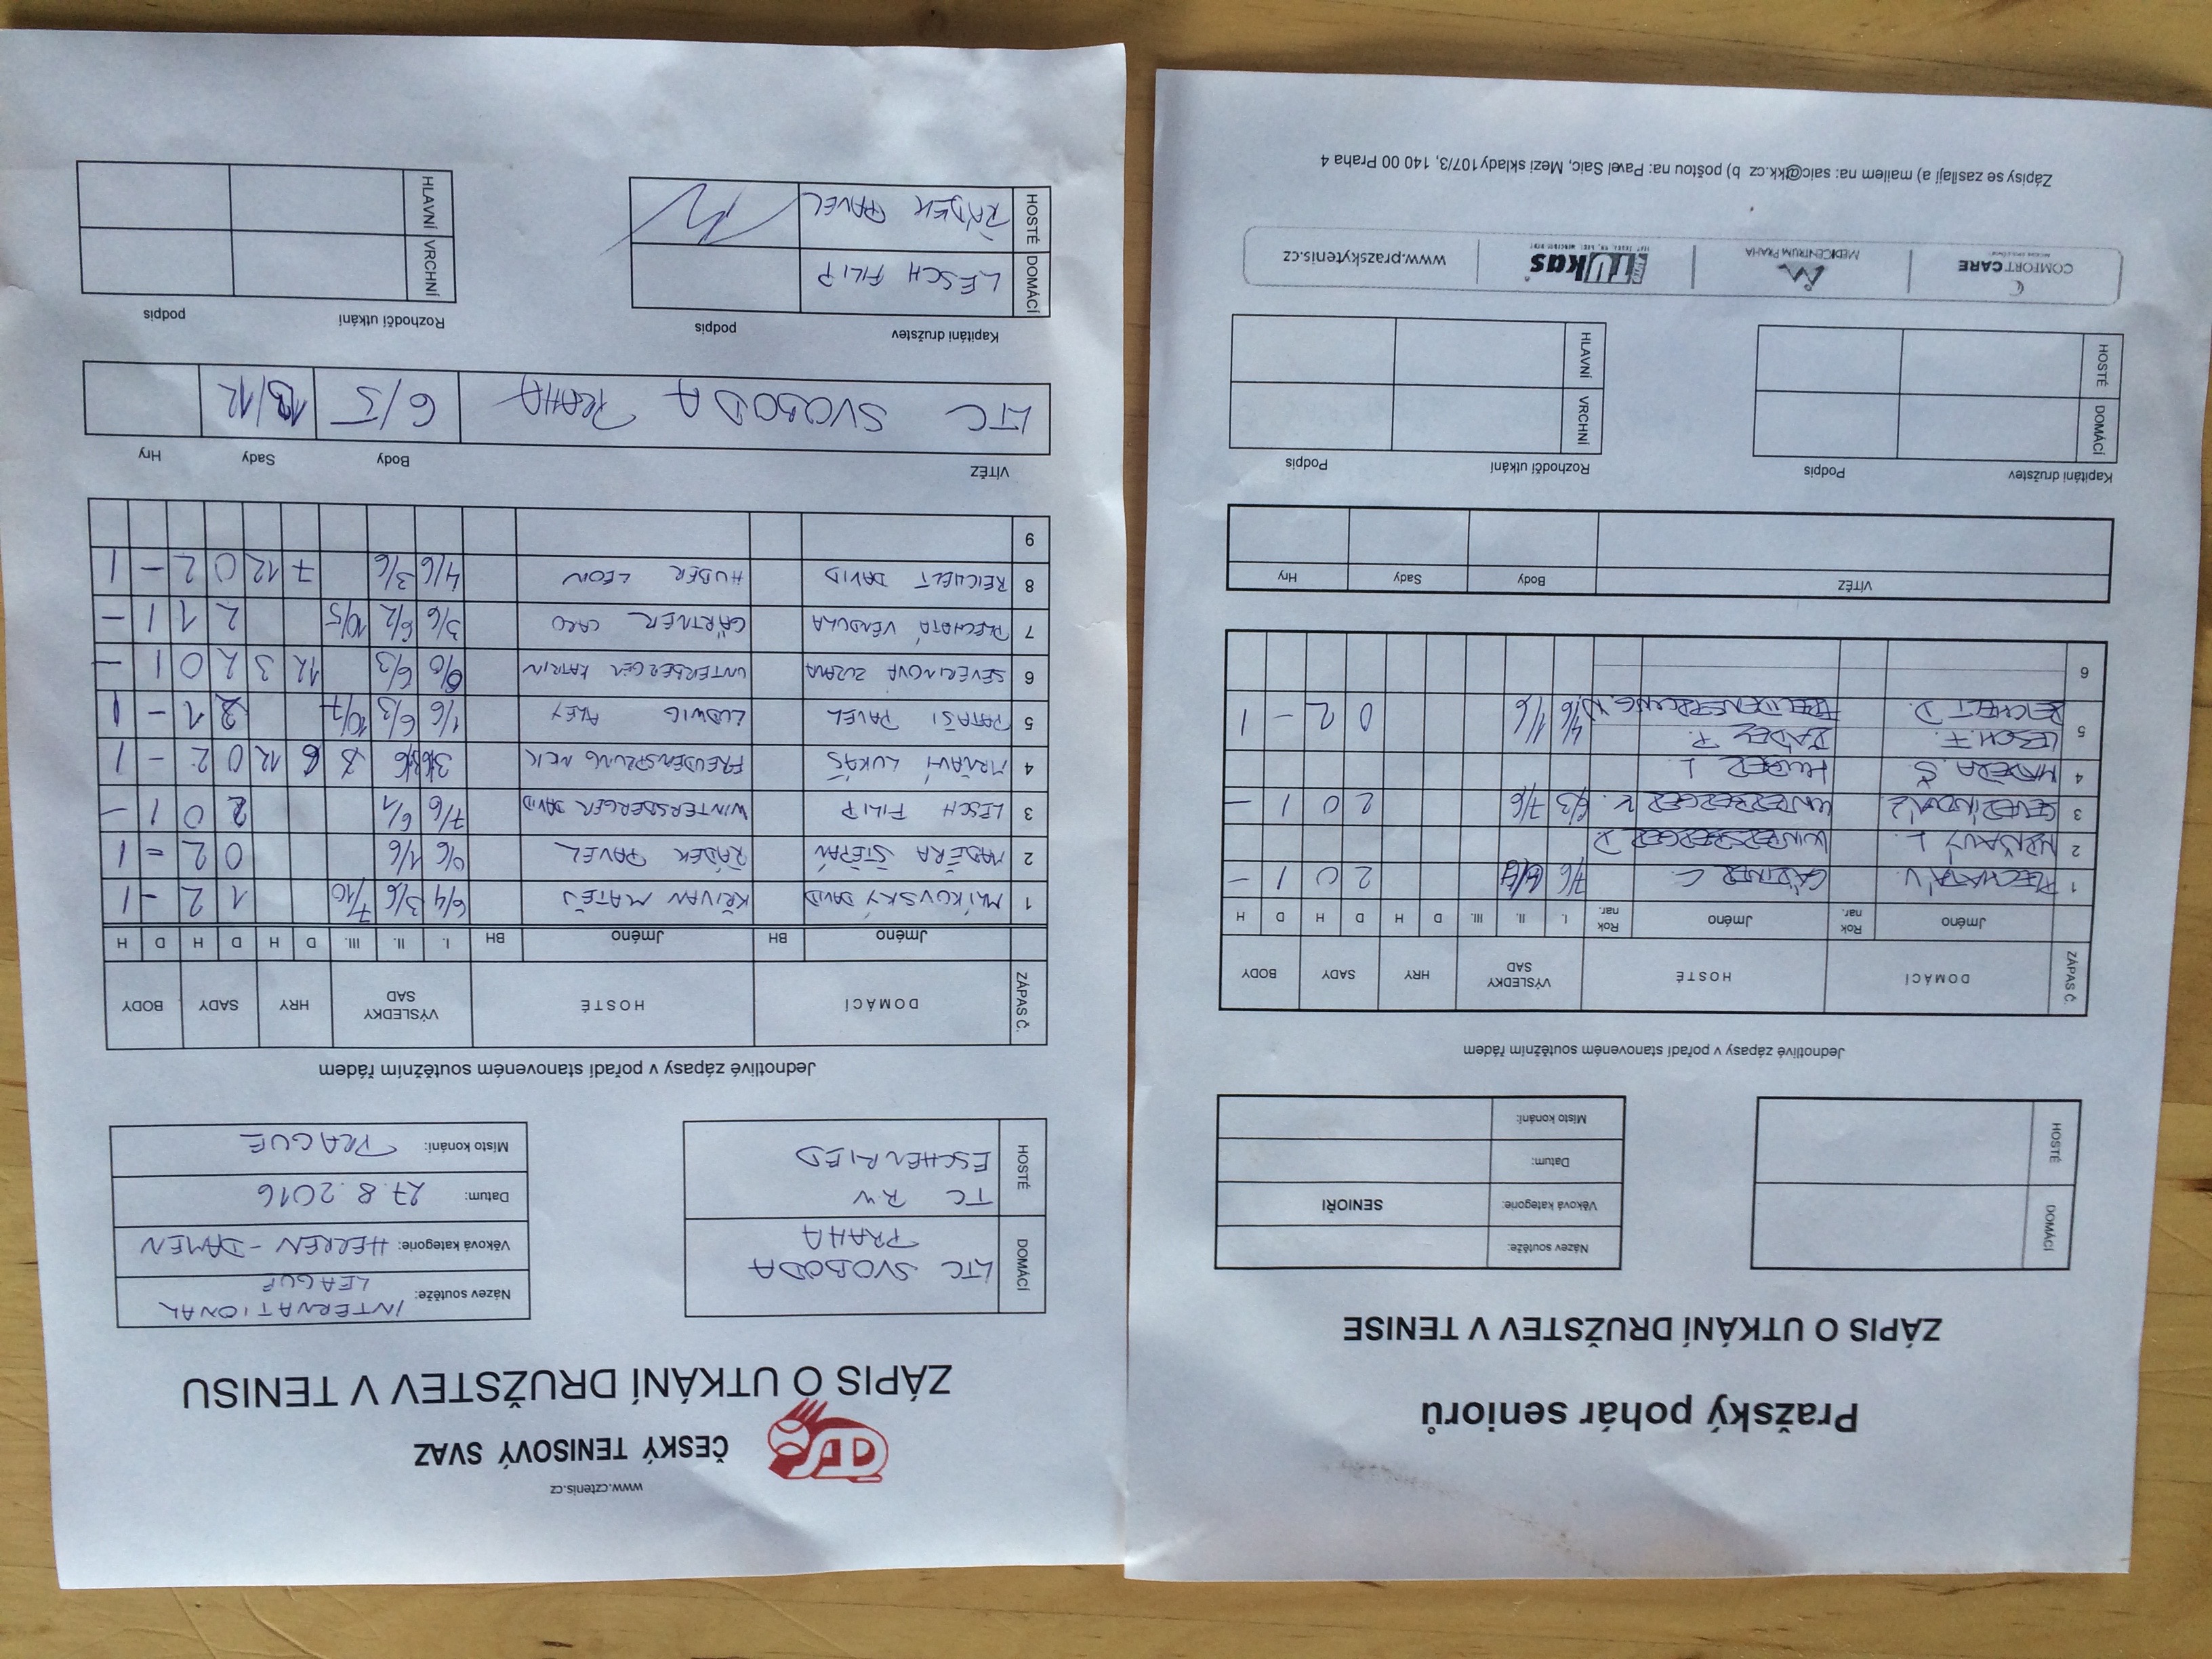 www.cztenis.cz
ČESKÝ TENISOVÝ SVAZ
ZÁPIS O UTKÁNÍ DRUŽSTEV V TENISU
DOMÁCÍ LTC SVOBODA PRAHA
HOSTÉ TC RW ESCHENRIED
Název soutěže: INTERNATIONAL LEAGUE
Věková kategorie: HERREN - DAMEN
Datum: 27.8.2016
Místo konání: PRAGUE
Jednotlivé zápasy v pořadí stanoveném soutěžním řádem
ZÁPAS Č. DOMÁCÍ HOSTÉ VÝSLEDKY SAD HRY SADY BODY
Jméno BH Jméno BH I. II. III. D H D H D H
1 MAJKOVSKÝ DAVID KŘIVAN MATĚJ 6/4 3/6 7/10 1 2 - 1
2 MADĚRA ŠTĚPÁN ŘÁDEK PAVEL 0/6 1/6 0 2 - 1
3 LESCH FILIP WINTERSBERGER DAVID 7/6 6/1 2 0 1 -
4 MRŇAVÝ LUKÁŠ FREUDENSPRUNG NICK 6 12 0 2 - 1
5 PATAŠI PAVEL LUDWIG ALEX 1/6 6/3 10/7 2 1 - 1
6 SEVERINOVÁ ZUZANA UNTERBERGER KATRIN 6/0 6/3 12 3 2 0 1 -
7 PLECHATÁ VENDULA GÄRTNER CARO 3/6 6/2 10/5 2 1 1 -
8 REICHELT DAVID HUBER LEON 4/6 3/6 7 12 0 2 - 1
9
VÍTĚZ Body Sady Hry
LTC SVOBODA PRAHA 6/5 13/12
Kapitáni družstev podpis Rozhodčí utkání podpis
DOMÁCÍ LESCH FILIP VRCHNÍ
HOSTÉ ŘÁDEK PAVEL HLAVNÍ
Pražský pohár seniorů
ZÁPIS O UTKÁNÍ DRUŽSTEV V TENISE
DOMÁCÍ
HOSTÉ
Název soutěže:
Věková kategorie: SENIOŘI
Datum:
Místo konání:
Jednotlivé zápasy v pořadí stanoveném soutěžním řádem
ZÁPAS Č. DOMÁCÍ HOSTÉ VÝSLEDKY SAD HRY SADY BODY
Jméno Rok nar. Jméno Rok nar. I. II. III. D H D H D H
1 PLECHATÁ V. GÄRTNER C. 7/6 2 0 1 -
2 MRŇAVÝ L. WINTERSBERGER D.
3 SEVERINOVÁ Z. UNTERBERGER K. 6/3 7/6 2 0 1 -
4 MADĚRA Š. HUBER L.
5 LESCH F. ŘÁDEK P.
REICHELT D. FREUDENSPRUNG N. 4/6 1/6 0 2 - 1
6
VÍTĚZ Body Sady Hry
Kapitáni družstev Podpis Rozhodčí utkání Podpis
DOMÁCÍ VRCHNÍ
HOSTÉ HLAVNÍ
COMFORT CARE MEDICENTRUM PRAHA TUkas www.prazskytenis.cz
Zápisy se zasílají a) mailem na: saic@tkk.cz b) poštou na: Pavel Saic, Mezi sklady107/3, 140 00 Praha 4